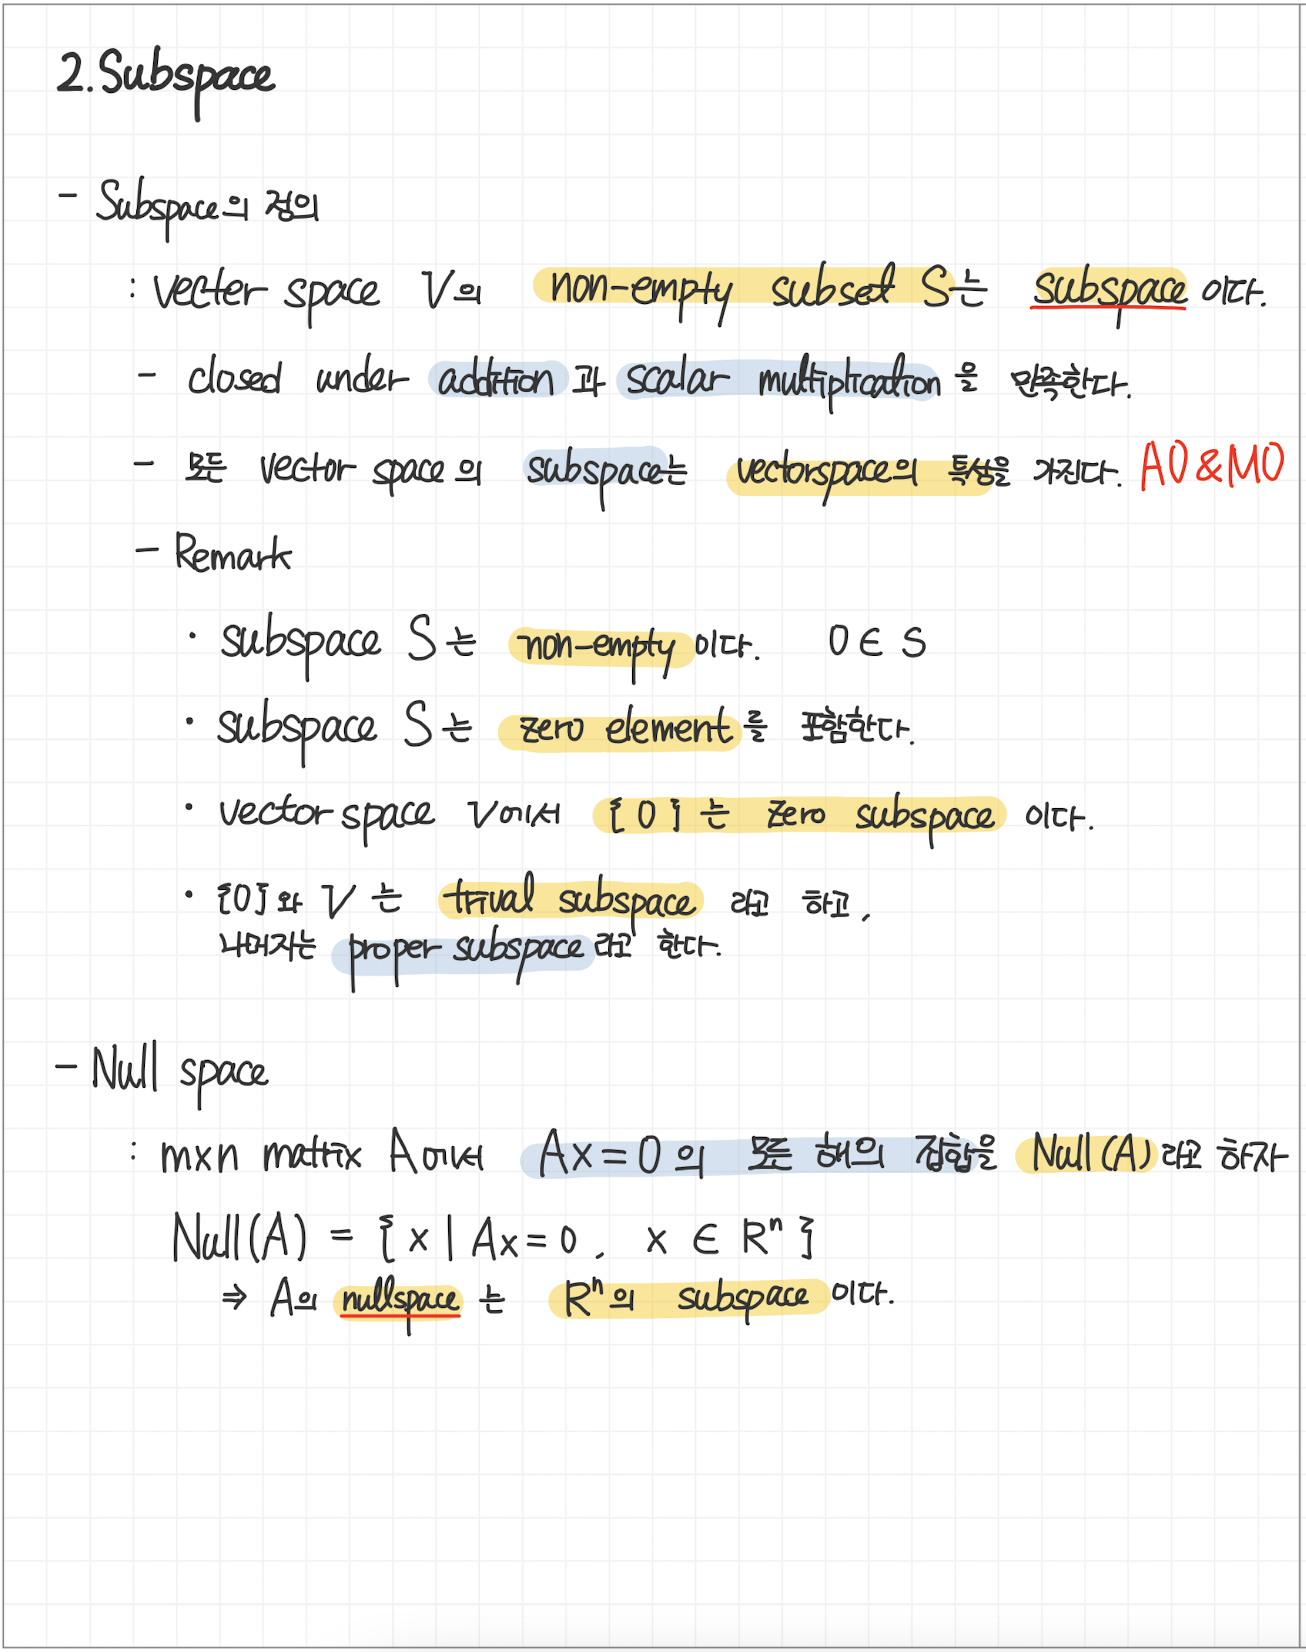 2. Subspace
- Subspace의 정의
: vecter space V의 non-empty subset S는 subspace 이다.
- closed under addition 과 scalar multiplication 을 만족한다.
- 모든 vector space의 subspace는 vectorspace의 특성을 가진다. A0&M0
- Remark
· subspace S는 non-empty 이다. 0 ∈ S
· subspace S는 zero element를 포함한다.
· vector space V에서 {0}는 zero subspace 이다.
· {0}와 V는 trival subspace 라고 하고,
나머지는 proper subspace라고 한다.
- Null space
: m×n matrix A에서 Ax=0의 모든 해의 집합을 Null(A)라고 하자
Null(A) = { x | Ax=0, x ∈ Rⁿ }
⇒ A의 nullspace 는 Rⁿ의 subspace 이다.